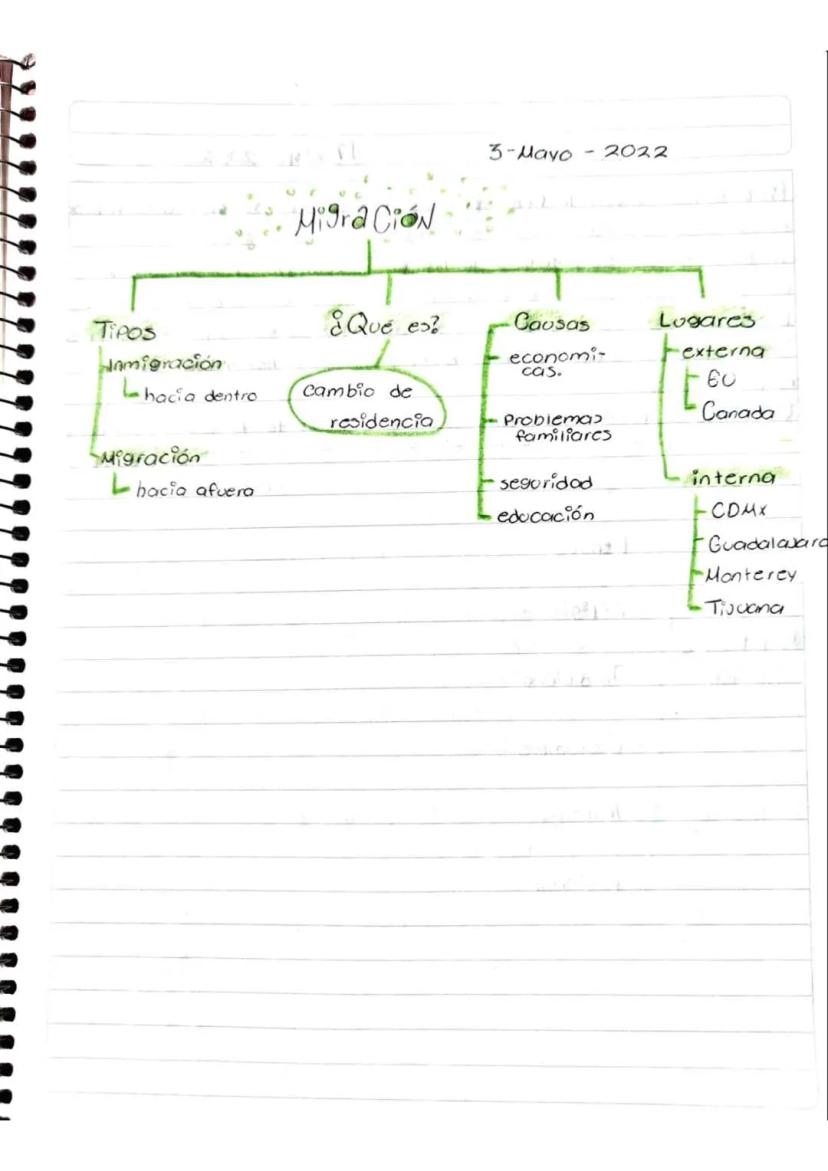 3-Mayo-2022
Migración
Tipos
Inmigración
hacia dentro
Migración
hacia afuera
¿Qué es?
cambio de
residencia
Causas
economi-
cas.
Problemas
familiares
seguridad
educación
Lugares
externa
EU
Canada
interna
CDMX
Guadalajara
Monterey
Tijuana